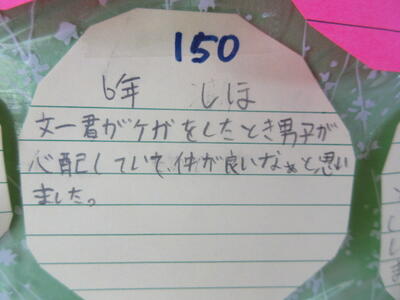 150
6年 しほ
文一君がケガをしたとき男子が
心配していて、仲が良いなぁと思い
ました。